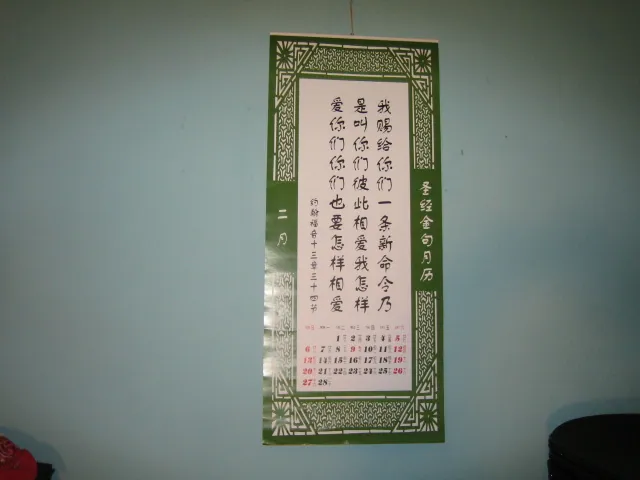 圣经金句月历
我赐给你们一条新命令乃
是叫你们彼此相爱我怎样
爱你们你们也要怎样相爱
约翰福音十三章三十四节
二月
1 2 3 4 5
6 7 8 9 10 11 12
13 14 15 16 17 18 19
20 21 22 23 24 25 26
27 28